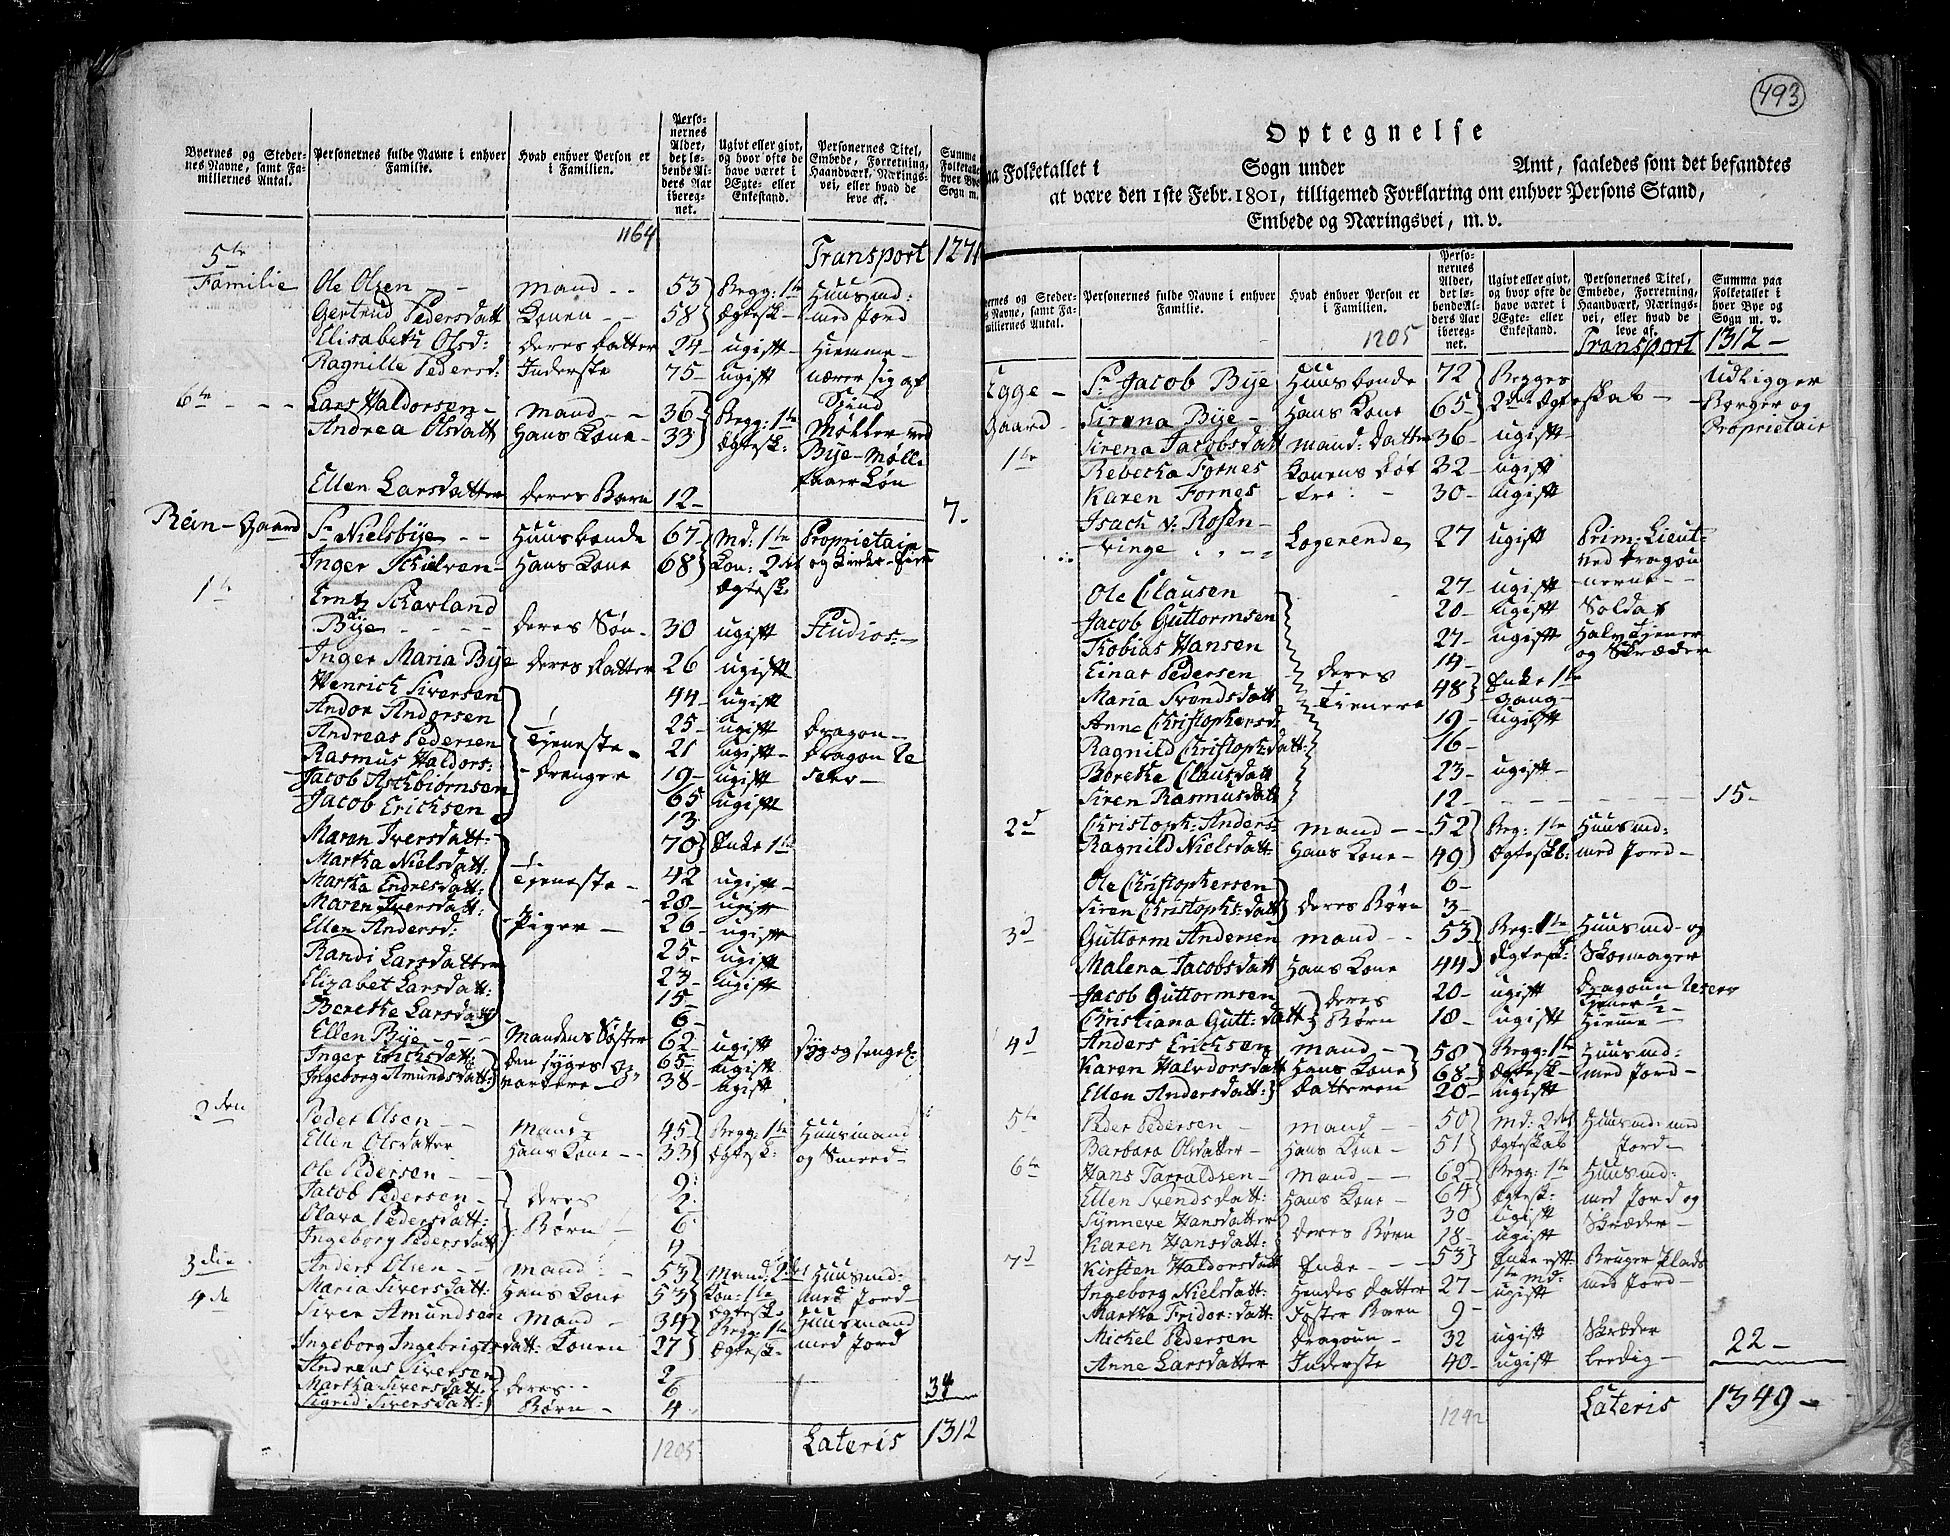 Byernes og Steder-
nes Navne, samt Fa-
miliernes Antal.
Personernes fulde Navne i enhver
Familie.
Hvad enhver Person er
i Familien.
Perso-
nernes
Alder,
det lø-
bende Al-
ders Aar
ibereg-
net.
Ugivt eller givt,
og hvor ofte de
have været i
Ægte- eller
Enkestand.
Personernes Titel,
Embede, Forretning,
Haandværk, Nærings-
vei, eller hvad de
leve af.
1164
Transport
5te
Familie Ole Olsen mand 53 Begg: 1te Huusmd:
Gertrud Pedersdatt Konen 58 Ægtesk med Jord
Elisabeth Olsd: deres datter 24 ugift Hiemme
Ragnille Pedersd: Inderste 75 ugift nærer sig af
6te Lars Haldorsen mand 36 Begg: 1te
Andrea Olsdatt Hans Kone 33 Ægtesk:
Møller ved
Bye-Mølle
faaer Løn
Ellen Larsdatter deres Barn 12 7.
Rein-Gaard Sr Niels Bye Huusbonde 67 Md: 1te Proprietair
Inger Hans Kone 68 Kon: 2det
1te Ægtesk:
Bye deres Søn 30 ugift Studios:
Inger Maria Bye deres datter 26 ugift
Henrich Siversen 44 ugift
Andor Andorsen 25 ugift dragon
Andreas Pedersen Tjeneste- 21 ugift
Rasmus Haldors: drenger 19 ugift
Jacob Aschbiørnsen 65 ugift
Jacob Erichsen 13
Maren Iversdatt: 70 Enke 1te
Martha Nielsdatt: Tjeneste- 42 ugift
Martha Endresdatt: 28 ugift
Maren Iversdatt: Piger 26 ugift
Ellen Andersd: 25 ugift
Randi Larsdatter 23 ugift
Elizabet Larsdatt: 15
Berethe Larsdatt 6
Ellen Bye Mandens Søster 62 ugift syg og sengel:
Inger Erichsdatt: den syges Op- 65 ugift
Ingeborg Amundsdatt: vartere 38 ugift
2den Peder Olsen Mand 45 Begg: 1te Huusmand
Ellen Olsdatter Hans Kone 33 Ægtesk: og Smeed
Ole Pedersen 9
Jacob Pedersen deres 2
Olava Pedersdatt: Børn 6
Ingeborg Pedersdatt 4
3die Anders Olsen mand 53 Mand: 2det Huusmd:
Maria Siversdatt: Hans Kone 53 Kon: 1te med Jord
4de Siver Amundsen Mand 34 Ægtesk Huusmand
Ingeborg Ingebrigtsdatt: Konen 27 Begg: 1te Ægtesk: med Jord
Andreas Siversen 2
Martha Siversdatt: deres 6
Sigrid Siversdatt: Børn 4
34
1205 Lateris 1312
493
Optegnelse
Folketallet i Sogn under Amt, saaledes som det befandtes
at være den 1ste Febr. 1801, tilligemed Forklaring om enhver Persons Stand,
Embede og Næringsvei, m. v.
Personernes fulde Navne i enhver
Familie.
Hvad enhver Person er
i Familien.
Perso-
nernes
Alder,
det lø-
bende Al-
ders Aar
iberegn-
net.
Ugivt eller givt,
og hvor ofte de
have været i
Ægte- eller
Enkestand.
Personernes Titel,
Embede, Forretning,
Haandværk, Nærings-
vei, eller hvad de
leve af.
Summa paa
Folketallet i
hver Bye og
Sogn m. v.
1205 Transport 1312
Egge Sr Jacob Bye Huusbonde 72 Begges Udligger
Gaard Sirena Bye Hans Kone 65 2det Ægteskab Borger og
1te Sirena Jacobsdatt mand: datter 36 ugift Proprietair
Rebecka Fornes Konens Døt 32 ugift
Karen Fornes tre 30 ugift
Isach v. Rosen-
vinge Logerende 27 ugift Prim: Lieut:
ved dragou
nerne
Ole Clausen 27 ugift Soldat
Jacob Guttormsen 20 ugift
Tobias Hansen 27 ugift og Skræder
Einar Pedersen deres 14
Maria Svendsdatt Tienere 48 Enke 1te Gang
Anne Christophersd: 19 ugift
Ragnild Christophdatt: 16
Berethe Clausdatt 23 ugift
Siren Rasmusdatt 12 15
2d Christoph: Anders: mand 52 Beg: 1te Huusmd:
Ragnild Nielsdatt: Hans Kone 49 Ægteskb: med Jord
Ole Christophersen 6
Siren Christophs: datt deres Børn 3
3d Guttorm Andersen mand 53 Beg: 1te Huusmd og
Malena Jacobsdatt Hans Kone 44 Ægtesk: Skoemager
Jacob Guttormsen deres 20 ugift dragoun
Christiana Gutt: datt: Børn 18 ugift Hiemme
4d Anders Erichsen mand 58 Begg: 1te Huusmd:
Karen Halvdorsdatt Hans Kone 68 Ægtesk med Jord
Ellen Andersdatt: datteren 20 ugift
5te Peder Pedersen mand 50 Md: 2det Huusmd: med
Barbara Olsdatter Hans Kone 51 Ægteskab Jord
6te Hans Tarraldsen Mand 62 Begg: 1te Huusmd:
Ellen Svendsdatt: Hans Kone 64 Ægtesk: med Jord og
Synneve Hansdatter deres Børn 30 ugift Skræder
Karen Hansdatt: 18 ugift
7d Kirsten Haldorsdatt Enke 53 Enke efft 1te md: Bruger Plads
Ingeborg Nielsdatt: Hendes datter 27 ugift med Jord
Martha Frider: datt: Foster Barn 9
Michel Pedersen dragoun 32 ugift Skræder
Anne Larsdatter Inderste 40 ugift 22
1242 Lateris 1349